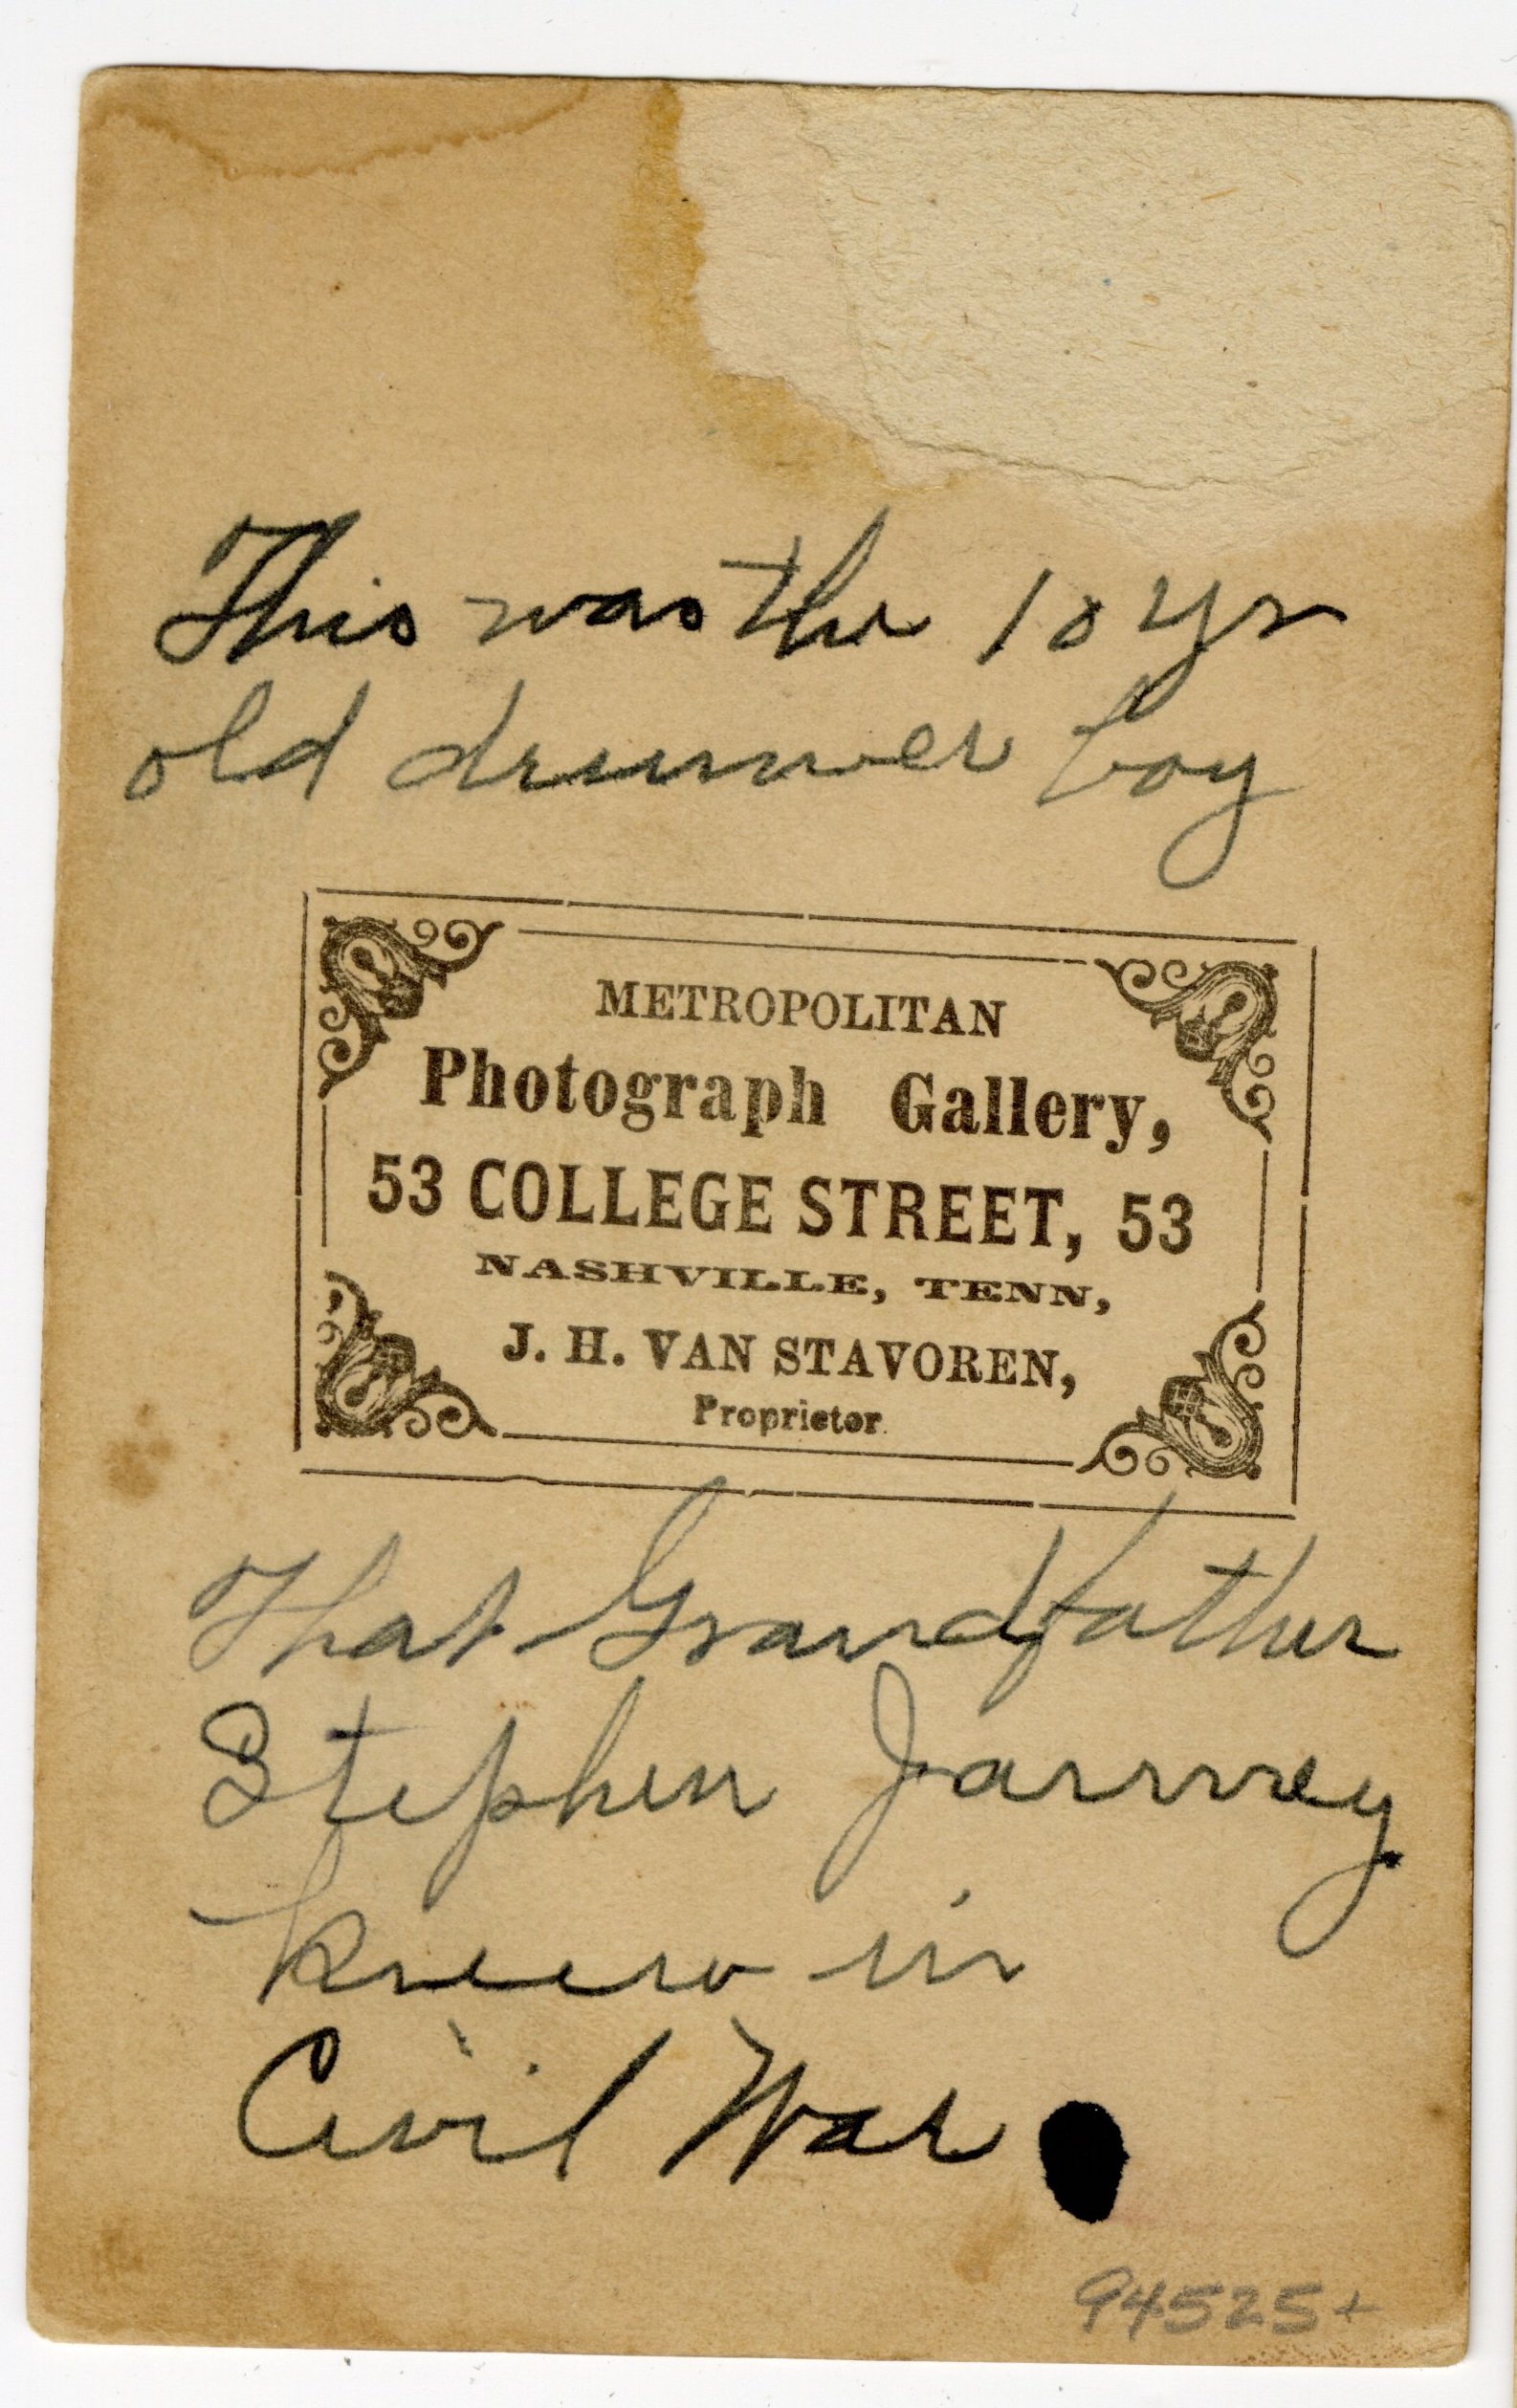 This was the 10 yr
old drummer boy
METROPOLITAN
Photograph Gallery,
53 COLLEGE STREET, 53
NASHVILLE, TENN,
J. H. VAN STAVOREN,
Proprietor.
That Grandfather
Stephen Janney
knew in
Civil War
94525+